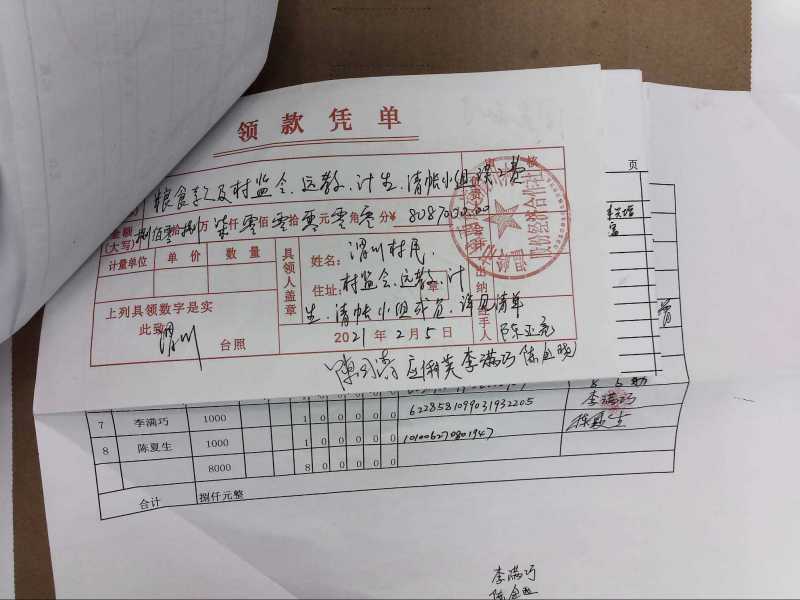 领款凭单
粮食款及村监会、远教、计生、清帐小组误工费
金额(大写) 捌佰零拾捌万柒仟零佰零拾零元零角零分¥ 8087000.00
计量单位 单价 数量
具领人盖章
姓名：渭川村民
住址：村监会、远教、计
生、清帐小组成员、详见清单
上列具领数字是实
此致
渭川 台照
2021年2月5日
出纳
经手人
李满巧
页
6228581099031932205
7 李满巧 1000 1 0 0 0 0 0 李满巧
8 陈夏生 1000 1 0 0 0 0 0 101006270801947 陈夏生
8000 8 0 0 0 0 0
合计 捌仟元整
李满巧